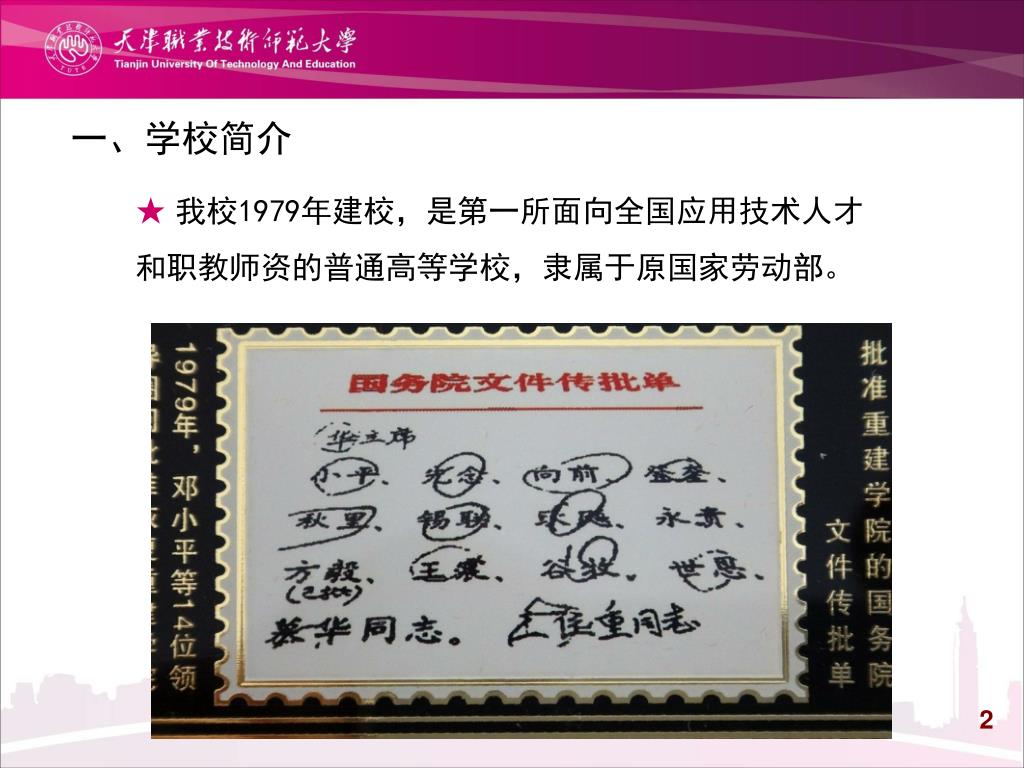 天津職業技術師範大學
Tianjin University Of Technology And Education
一、学校简介
★ 我校1979年建校，是第一所面向全国应用技术人才
和职教师资的普通高等学校，隶属于原国家劳动部。
国务院文件传批单
华主席
小平、先念、向前、登奎、
秋里、锡联、永贵、
方毅、王震、谷牧、世恩、
(已批)
慕华同志。
任重同志
1979年，邓小平等14位领
批准重建学院的国务院
文件传批单
2